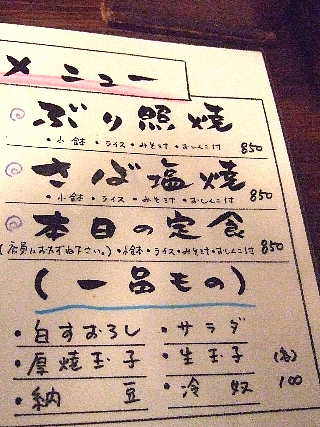 メニュー
ぶり照焼
・小鉢・ライス・みそ汁・おしんこ付 850
さば塩焼
・小鉢・ライス・みそ汁・おしんこ付 850
本日の定食
(店員におたずね下さい。)・小鉢・ライス・みそ汁・おしんこ付 850
(一品もの)
・白すおろし ・サラダ
・厚焼玉子 ・生玉子 (各)
・納豆 ・冷奴 100